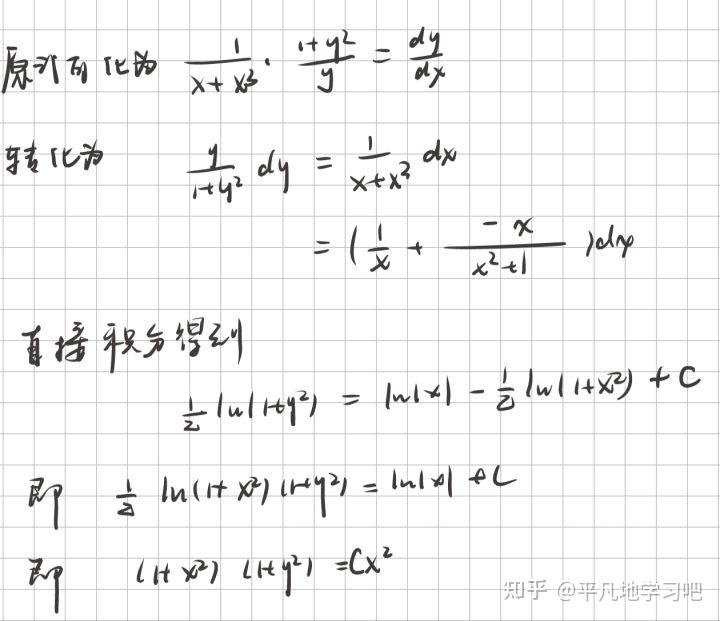 原式可化为 1/(x+x³) · (1+y²)/y = dy/dx
转化为 y/(1+y²) dy = 1/(x+x³) dx
= (1/x + (-x)/(x²+1))dx
直接积分得到
1/2 ln(1+y²) = ln|x| - 1/2 ln(1+x²) + C
即 1/2 ln(1+x²)(1+y²) = ln|x| + C
即 (1+x²)(1+y²) = Cx²
知乎 @平凡地学习吧